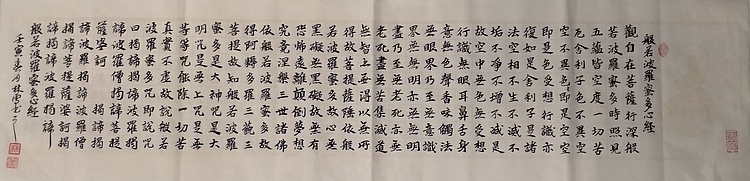 般若波羅蜜多心經
觀自在菩薩行深般
若波羅蜜多時照見
五蘊皆空度一切苦
厄舍利子色不異空
空不異色色即是空空
即是色受想行識亦
復如是舍利子是諸
法空相不生不滅不
垢不淨不增不減是
故空中無色無受想
行識無眼耳鼻舌身
意無色聲香味觸法
無眼界乃至無意識
界無無明亦無無明
盡乃至無老死亦無
老死盡無苦集滅道
無智亦無得以無所
得故菩提薩埵依般
若波羅蜜多故心無
罣礙無罣礙故無有
恐怖遠離顛倒夢想
究竟涅槃三世諸佛
依般若波羅蜜多故
得阿耨多羅三藐三
菩提故知般若波羅
蜜多是大神咒是大
明咒是無上咒是無
等等咒能除一切苦
真實不虛故說般若
波羅蜜多咒即說咒
曰揭諦揭諦波羅揭
諦波羅僧揭諦菩提
薩婆訶揭諦揭
諦波羅揭諦波羅僧
揭諦菩提薩婆訶揭
諦揭諦波羅揭諦
般若波羅蜜多心經
壬寅春月林書